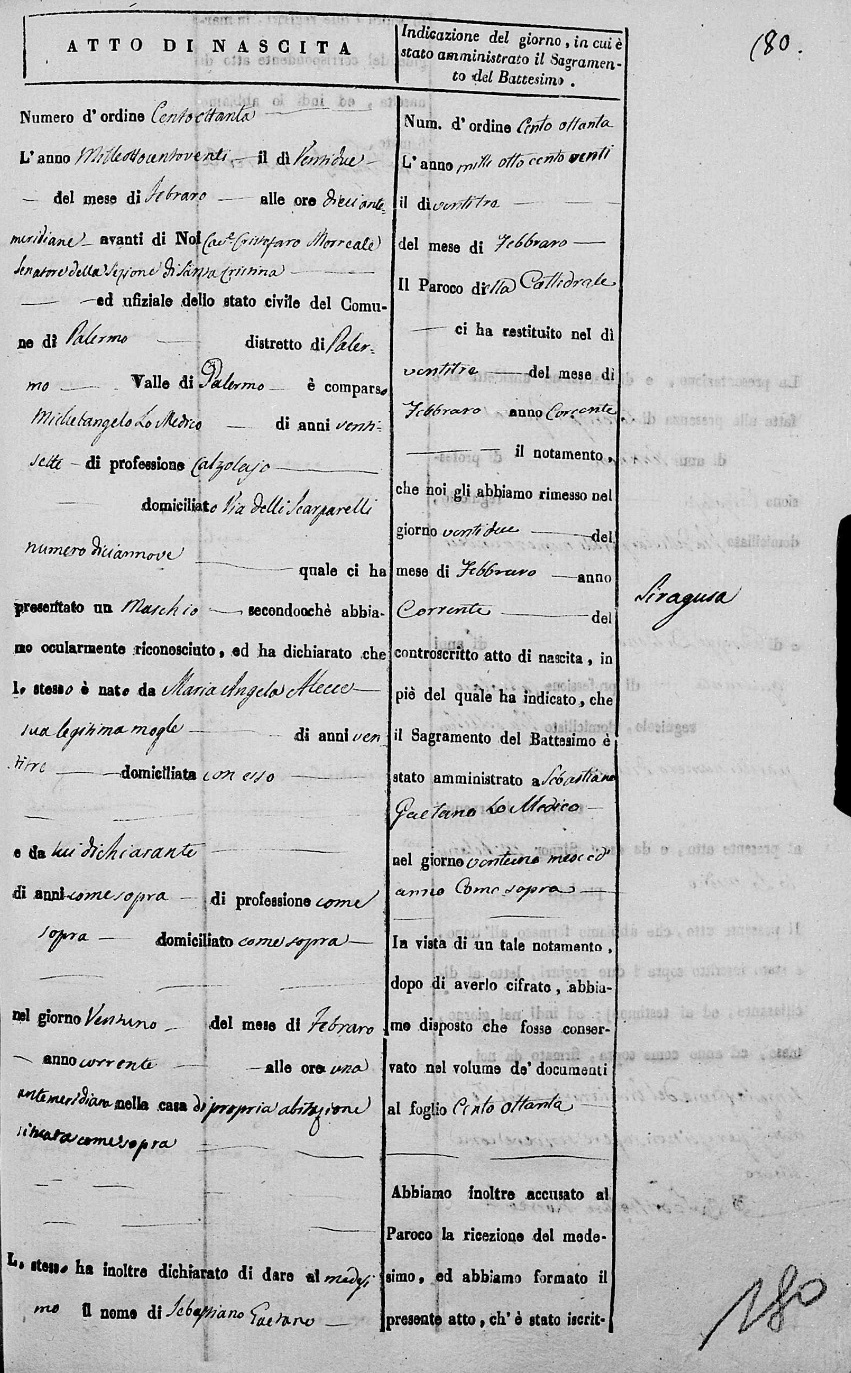 180.
ATTO DI NASCITA
Numero d' ordine Cento ottanta
L'anno Milleottocentoventi il dì Ventidue
del mese di Febraro alle ore dieci ante-
meridiane avanti di Noi Cav.e Cristofaro Morreale
Senatore della Sezione di Santa Cristina
ed ufiziale dello stato civile del Comu-
ne di Palermo distretto di Paler-
mo Valle di Palermo è comparso
Michelangelo Lo Medico di anni venti-
sette di professione Calzolajo
domiciliato Via delli Scarparelli
numero diciannove quale ci ha
presentato un Maschio secondoochè abbia-
mo ocularmente riconosciuto, ed ha dichiarato che
lo stesso è nato da Maria Angela Alecce
sua legitima mogle di anni ven
titre domiciliata con esso
e da lui dichiarante
di anni come sopra di professione come
sopra domiciliato come sopra
nel giorno Ventuno del mese di Febraro
anno corrente alle ore una
antemeridiana nella casa di propria abitazione
situata come sopra
Lo stesso ha inoltre dichiarato di dare al medesi
mo il nome di Sebastiano Gaetano
Indicazione del giorno, in cui è
stato amministrato il Sagramen-
to del Battesimo.
Num. d' ordine Cento ottanta
L'anno mille otto cento venti
il dì ventitre
del mese di Febbraro
Il Paroco della Cattedrale
ci ha restituito nel dì
ventitre del mese di
Febbraro anno Corrente
il notamento,
che noi gli abbiamo rimesso nel
giorno ventidue del
mese di Febbraro anno
Corrente del
controscritto atto di nascita, in
piè del quale ha indicato, che
il Sagramento del Battesimo è
stato amministrato a Sebastiano
Gaetano Lo Medico
nel giorno ventuno mese ed
anno Come sopra
In vista di un tale notamento,
dopo di averlo cifrato, abbia-
mo disposto che fosse conser-
vato nel volume de' documenti
al foglio Cento ottanta
Abbiamo inoltre accusato al
Paroco la ricezione del mede-
simo, ed abbiamo formato il
presente atto, ch' è stato iscrit-
Siragusa
180